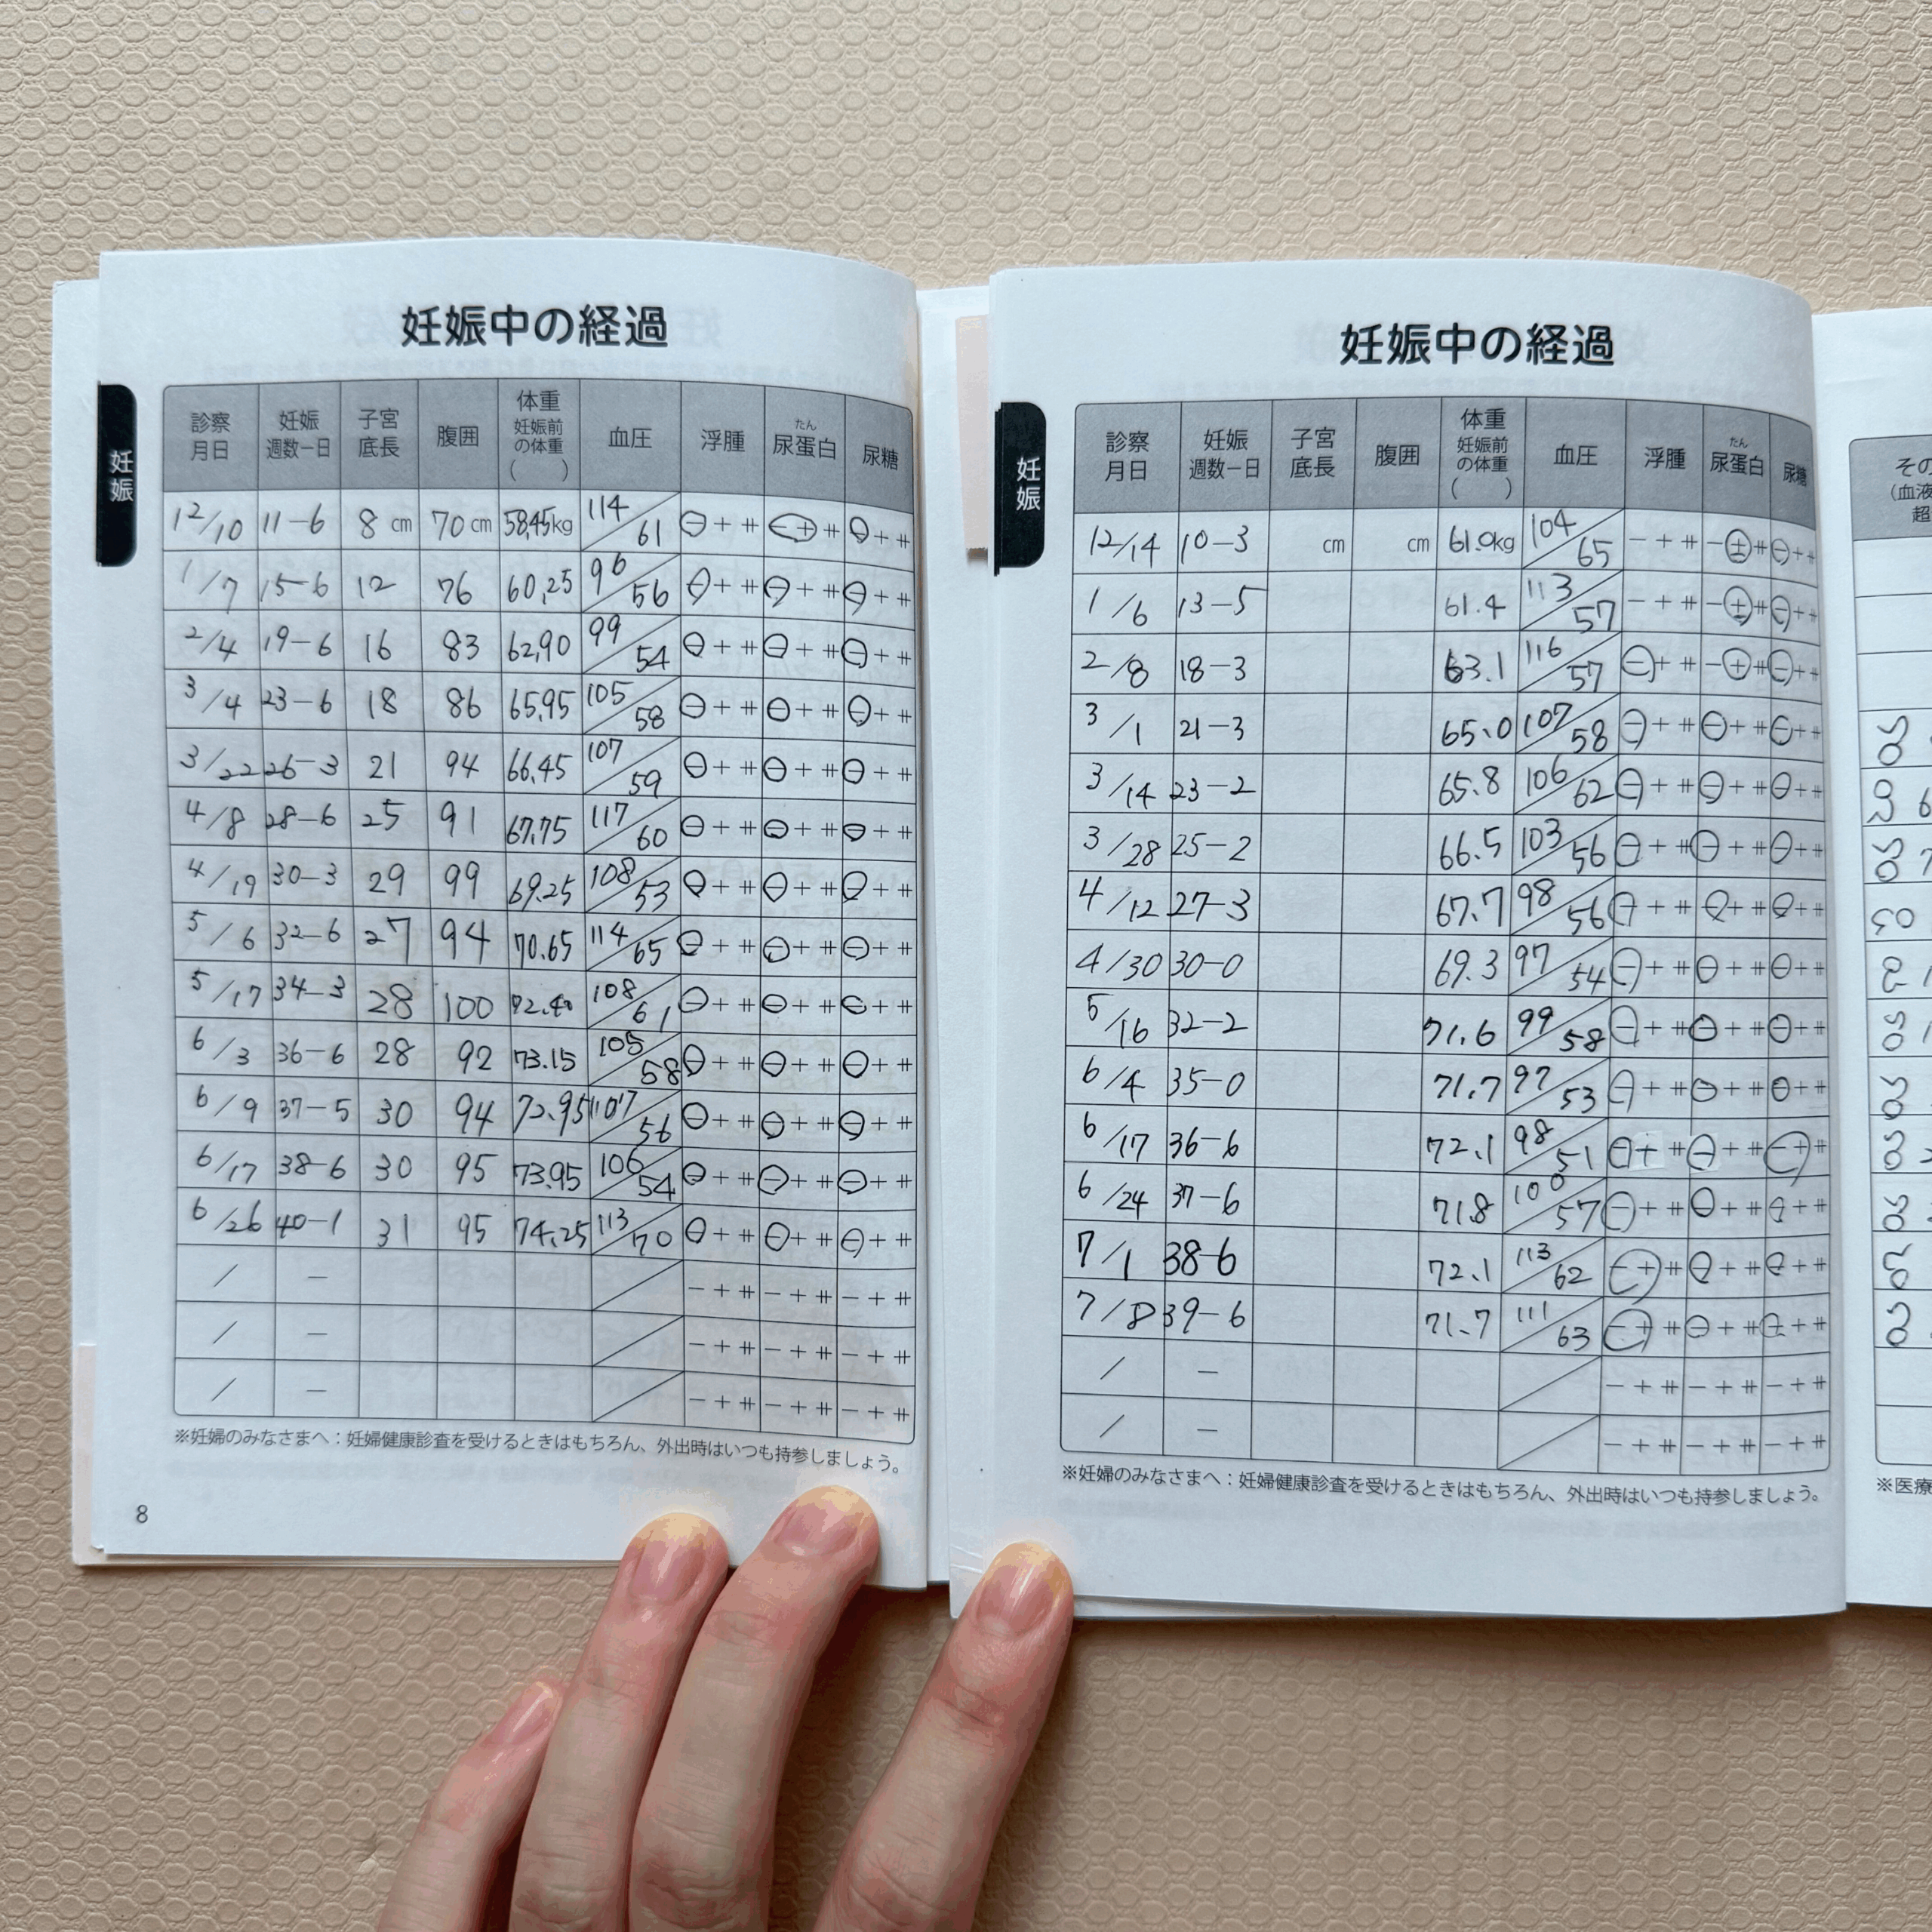 妊娠中の経過
妊娠
診察月日 妊娠週数－日 子宮底長 腹囲 体重 妊娠前の体重( ) 血圧 浮腫 尿蛋白 たん 尿糖
12/10 11-6 8 cm 70 cm 58.45kg 114/61 － + ⧺ － + ⧺ － + ⧺
1/7 15-6 12 76 60.25 96/56 － + ⧺ － + ⧺ － + ⧺
2/4 19-6 16 83 62.90 99/54 － + ⧺ － + ⧺ － + ⧺
3/4 23-6 18 86 65.95 105/58 － + ⧺ － + ⧺ － + ⧺
3/22 26-3 21 94 66.45 107/59 － + ⧺ － + ⧺ － + ⧺
4/8 28-6 25 91 67.75 117/60 － + ⧺ － + ⧺ － + ⧺
4/19 30-3 29 99 69.25 108/53 － + ⧺ － + ⧺ － + ⧺
5/6 32-6 27 94 70.65 114/65 － + ⧺ － + ⧺ － + ⧺
5/17 34-3 28 100 72.40 108/61 － + ⧺ － + ⧺ － + ⧺
6/3 36-6 28 92 73.15 105/58 － + ⧺ － + ⧺ － + ⧺
6/9 37-5 30 94 72.95 107/56 － + ⧺ － + ⧺ － + ⧺
6/17 38-6 30 95 73.95 106/54 － + ⧺ － + ⧺ － + ⧺
6/26 40-1 31 95 74.25 113/70 － + ⧺ － + ⧺ － + ⧺
/ － / － + ⧺ － + ⧺ － + ⧺
/ － / － + ⧺ － + ⧺ － + ⧺
/ － / － + ⧺ － + ⧺ － + ⧺
※妊婦のみなさまへ：妊婦健康診査を受けるときはもちろん、外出時はいつも持参しましょう。
8
妊娠中の経過
妊娠
診察月日 妊娠週数－日 子宮底長 腹囲 体重 妊娠前の体重( ) 血圧 浮腫 尿蛋白 たん 尿糖
12/14 10-3 cm cm 61.0kg 104/65 － + ⧺ － ± ⧺ － + ⧺
1/6 13-5 61.4 113/57 － + ⧺ － ± ⧺ － + ⧺
2/8 18-3 63.1 116/57 － + ⧺ － + ⧺ － + ⧺
3/1 21-3 65.0 107/58 － + ⧺ － + ⧺ － + ⧺
3/14 23-2 65.8 106/62 － + ⧺ － + ⧺ － + ⧺
3/28 25-2 66.5 103/56 － + ⧺ － + ⧺ － + ⧺
4/12 27-3 67.7 98/56 － + ⧺ － + ⧺ － + ⧺
4/30 30-0 69.3 97/54 － + ⧺ － + ⧺ － + ⧺
5/16 32-2 71.6 99/58 － + ⧺ － + ⧺ － + ⧺
6/4 35-0 71.7 97/53 － + ⧺ － + ⧺ － + ⧺
6/17 36-6 72.1 98/51 － + ⧺ － + ⧺ － + ⧺
6/24 37-6 71.8 100/57 － + ⧺ － + ⧺ － + ⧺
7/1 38-6 72.1 113/62 － + ⧺ － + ⧺ － + ⧺
7/8 39-6 71.7 111/63 － + ⧺ － + ⧺ － + ⧺
/ － / － + ⧺ － + ⧺ － + ⧺
/ － / － + ⧺ － + ⧺ － + ⧺
※妊婦のみなさまへ：妊婦健康診査を受けるときはもちろん、外出時はいつも持参しましょう。
その
(血液
超
※医療